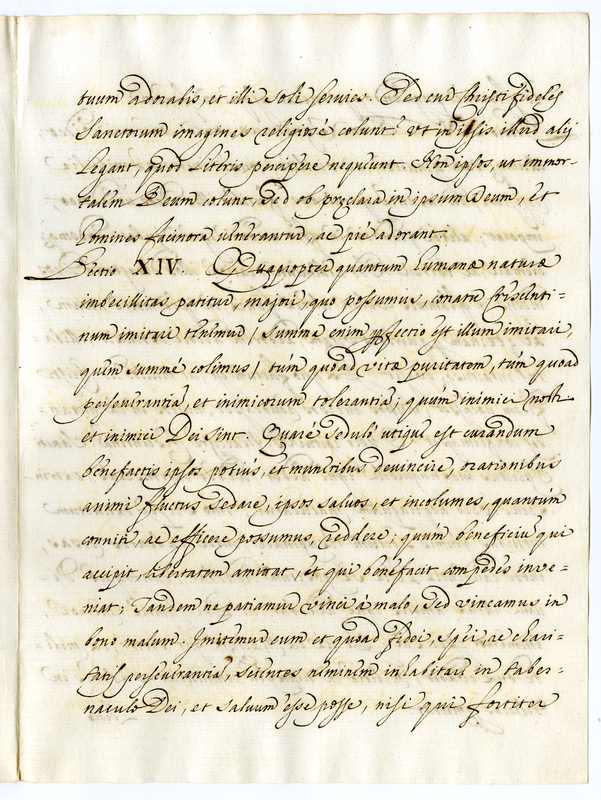 tuum adorabis, et illi soli servies. Sed cur Christi fideles
Sanctorum imagines religiosé colunt? Ut in ipsis illud alij
Legant, quod Literis percipere nequeunt. Non ipsos, ut immor-
talem Deum colunt, Sed ob præclara in ipsum Deum, et
homines facinora venerantur, ac pié adorant.
Sectio XIV. Quapropter quantum humanæ naturæ
imbecillitas patitur, majori, quo possumus, conatu Criscenti=
num imitari tenemur / summa enim pfectio est illum imitari,
quem summé colimus / tum quoad vitæ puritatem, tum quoad
perseverantia, et inimicorum tolerantia; quum inimici nostri
et inimici Dei sint. Quaré sedulò utique est curandum
benefactis ipsos potius, et muneribus devincire, orationibus
animi fluctus sedare, ipsos salvos, et incolumes, quantum
conniti, ac efficere possumus, reddere; quum beneficiu qui
accipit, libertatem amittat, et qui benefacit compedes inve=
niat; Tandem ne patiamur vinci à malo, Sed vincamus in
bono malum. Imitemur eum et quoad fidei, spei, ac chari=
tatis perseverantia, scientes neminem inhabitare in taber=
naculo Dei, et salvum esse posse, nisi qui fortiter